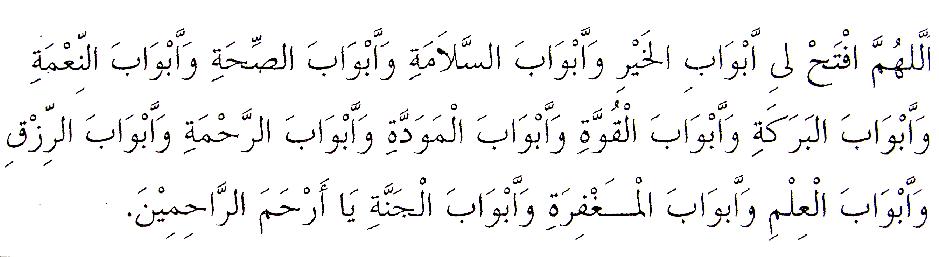 اَللّٰهُمَّ افْتَحْ لِى اَبْوَابِ الخَيْرِ وَاَبْوَابَ السَّلَامَةِ وَاَبْوَابَ الصِّحَةِ وَاَبْوَابَ النِّعْمَةِ
وَاَبْوَابَ البَرَكَةِ وَاَبْوَابَ الْقُوَّةِ وَاَبْوَابَ الْمَوَدَّةِ وَاَبْوَابَ الرَّحْمَةِ وَاَبْوَابَ الرِّزْقِ
وَاَبْوَابَ الْعِلْمِ وَاَبوَابَ الْمَـغْفِرَةِ وَاَبْوَابَ الْجَنَّةِ يَا أَرْحَمَ الرَّاحِمِيْنَ.